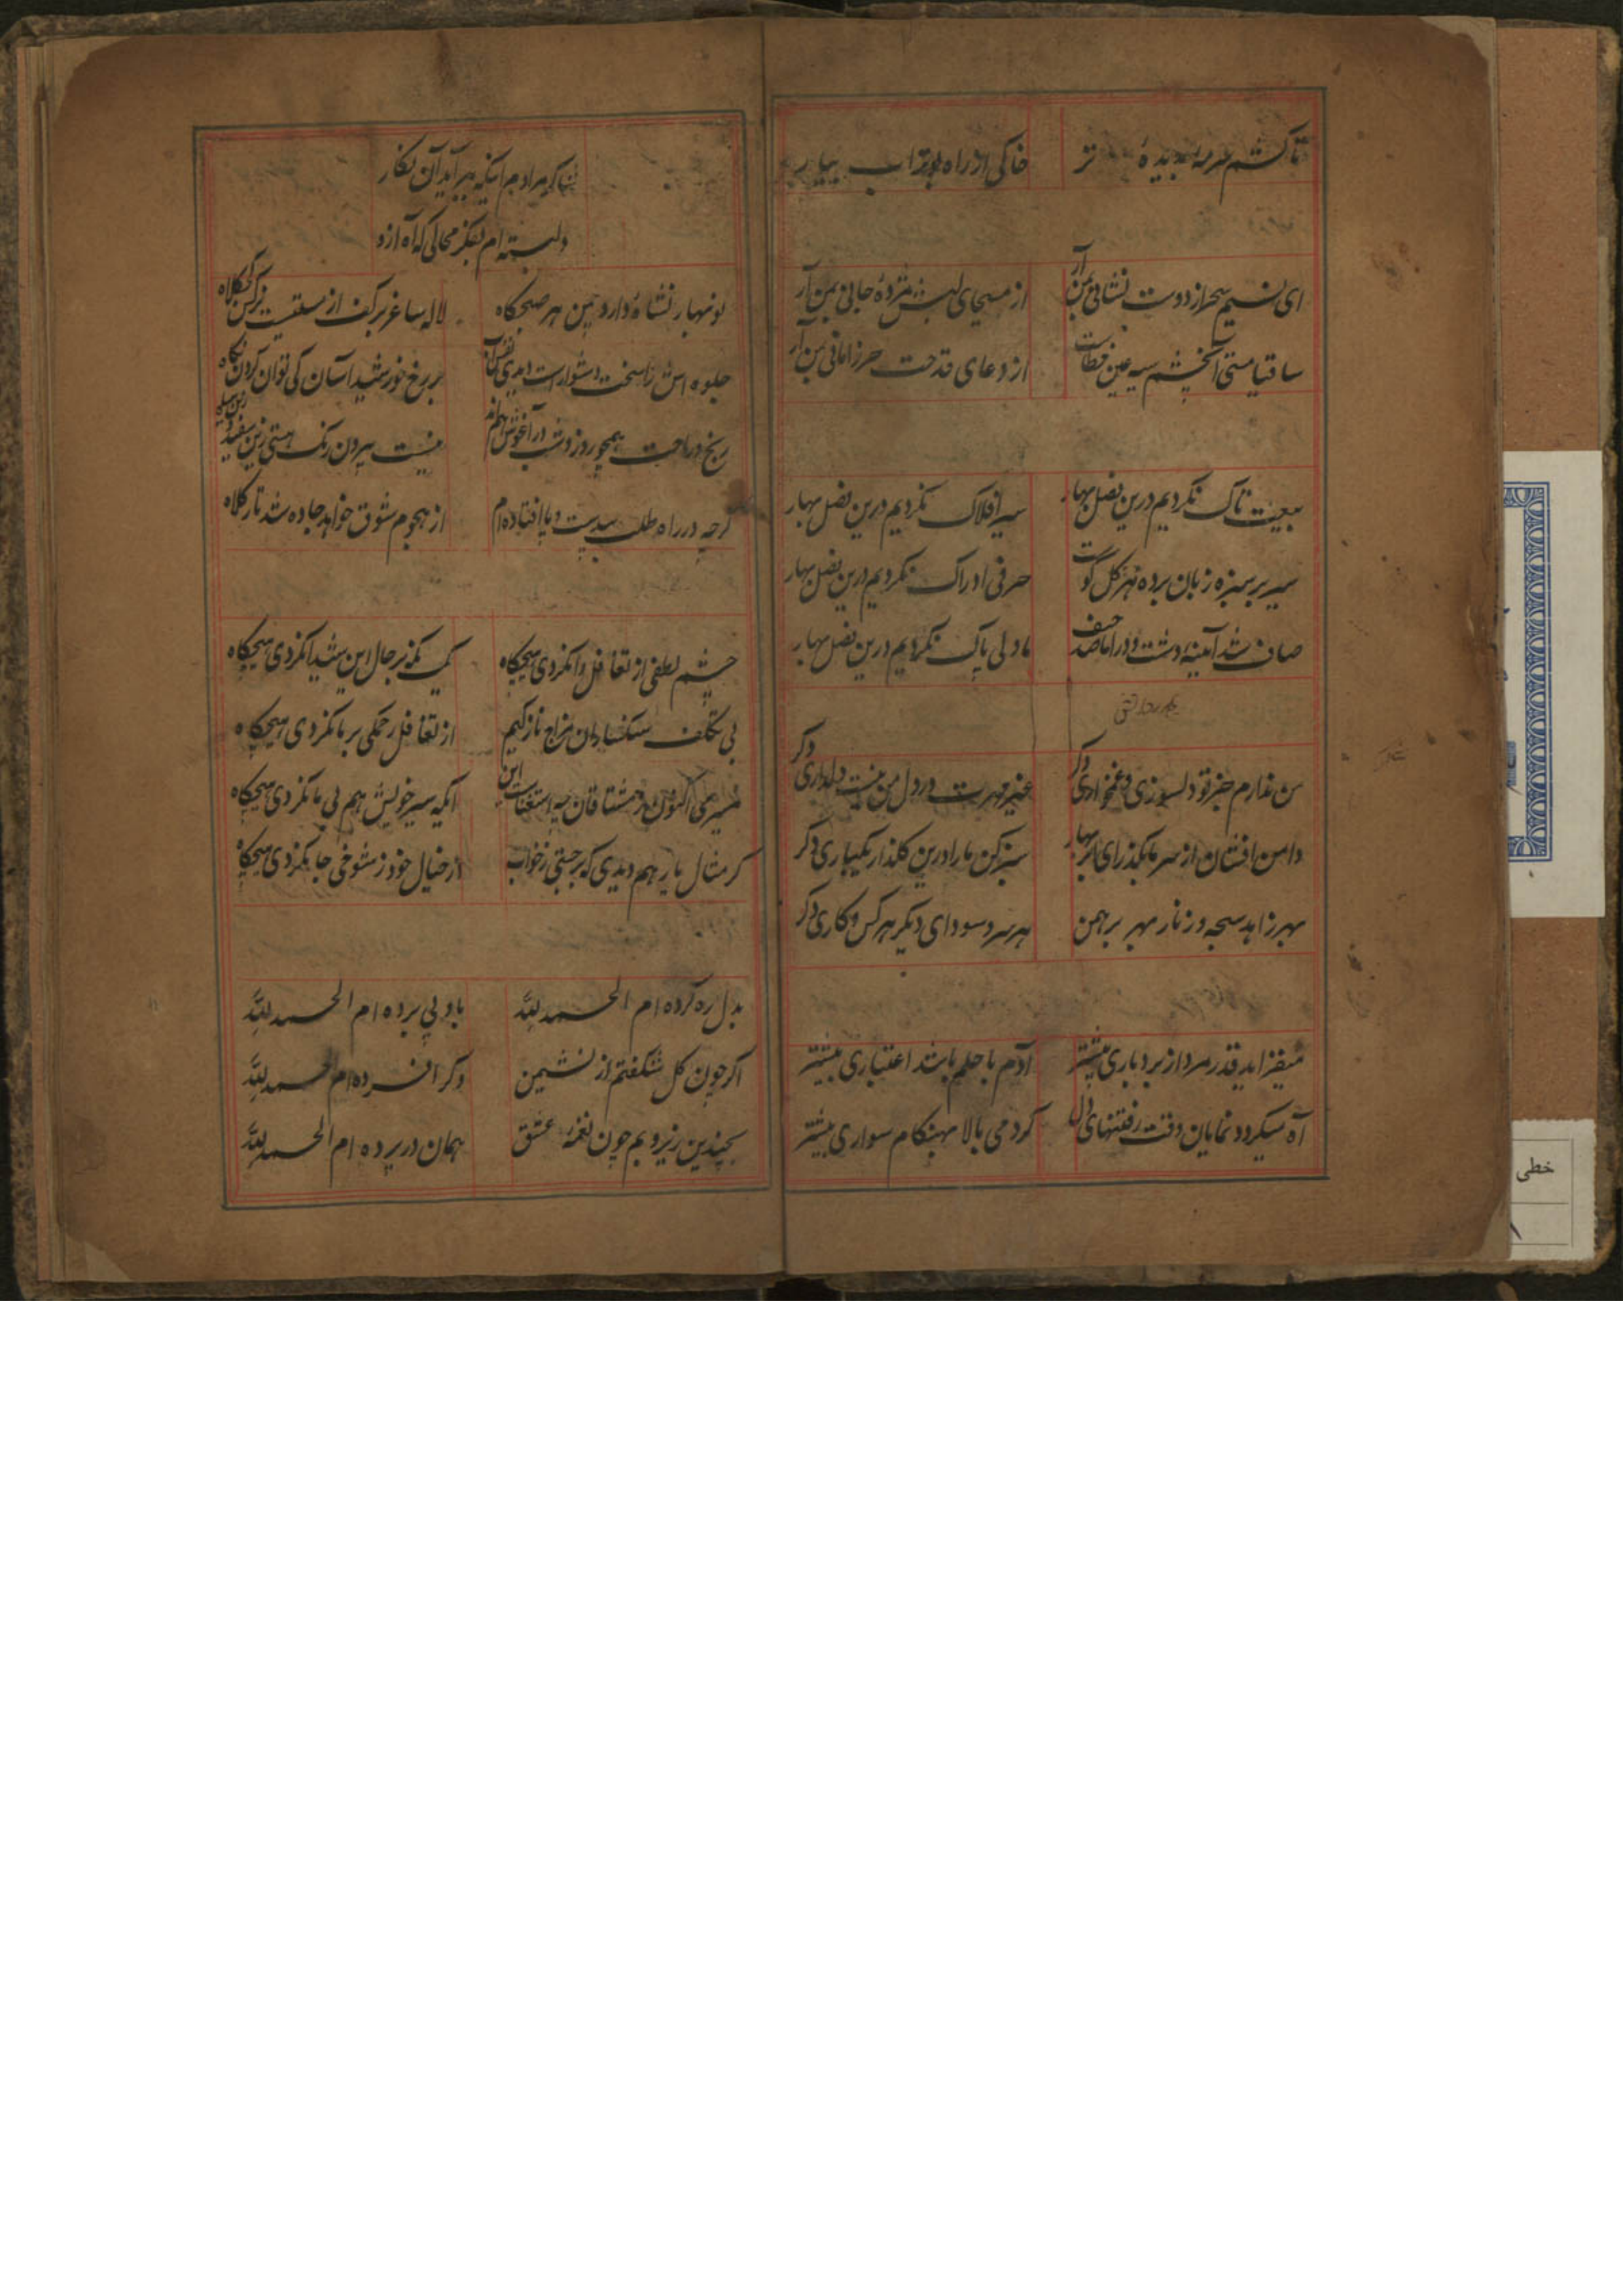 تا کشم سرمه بدیدهٔ تر
خاکی از راه بوتراب بیار
ای نسیم سحر از دوست نشانی بمن آر
از مسیحای لبش مژدهٔ جانی بمن آر
ساقیا مستی آن چشم سیه عین خطاست
از دعای قدحت حرز امانی بمن آر
بیعت تاک نکردیم درین فصل بهار
سیر افلاک نکردیم درین فصل بهار
سر بسر سبزه زبان برده ز هر گل گوت
حرفی ادراک نکردیم درین فصل بهار
صاف شد آینهٔ دشت و در اما صد حیف
ما دلی پاک نکردیم درین فصل بهار
من ندارم جز تو دلسوزی و غمخواری دکر
غیر مهرت در دل من نیست دلداری دکر
دامن افشان از سر ما بگذر ای ابر بهار
سبز کن ما را درین کلذار یکباری دکر
مهر زاهد سبحه و زنار مهر برهمن
هر سر و سودای دیکر هر کس و کاری دکر
میفزاید قدر مرد از بردباری بیشتر
آدم با حلم باشد اعتباری بیشتر
آه میکردد نمایان وقت رفتنهای دل
کرد می بالا بهنکام سواری بیشتر
شاکر مرادم اینکه ببر آید آن نکار
دلبسته ام بفکر محالی که آه ازو
نوبهار نشاه دارد چمن هر صبحکاه
لاله ساغر بر کف از مستیست نرکس کجکلاه
جلوه اش را سخت دشوار است دیدن
بر رخ خورشید آسان کی توان کردن نکاه
رنج و راحت همچو روز و شب در آغوش هم اند
نیست بیرون رنک هستی زین سفید و زین سیاه
کرچه در راه طلب بیدست و پا افتاده ام
از هجوم شوق خواهد جاده شد تار کلاه
چشم لطفی از تغافل وا نکردی هیچکاه
یک نکه بر حال این شیدا نکردی هیچکاه
بی تکلف ستکسادان مزاج نازکیم
از تغافل رحمکی بر ما نکردی هیچکاه
میرمی اکنون ز مشتاقان چه استغناست این
ایکه سیر خویش هم بی ما نکردی هیچکاه
کر مثال یار هم دیدی که برجستی ز خواب
از خیال خود ز شوخی جا نکردی هیچکاه
بدل ره کرده ام الحمد لله
باو پی برده ام الحمد لله
اکر چون کل شکفتم از نشیمن
وکر افسرده ام الحمد لله
بچندین زیر و بم چون نغمهٔ عشق
همان در پرده ام الحمد لله
خطی